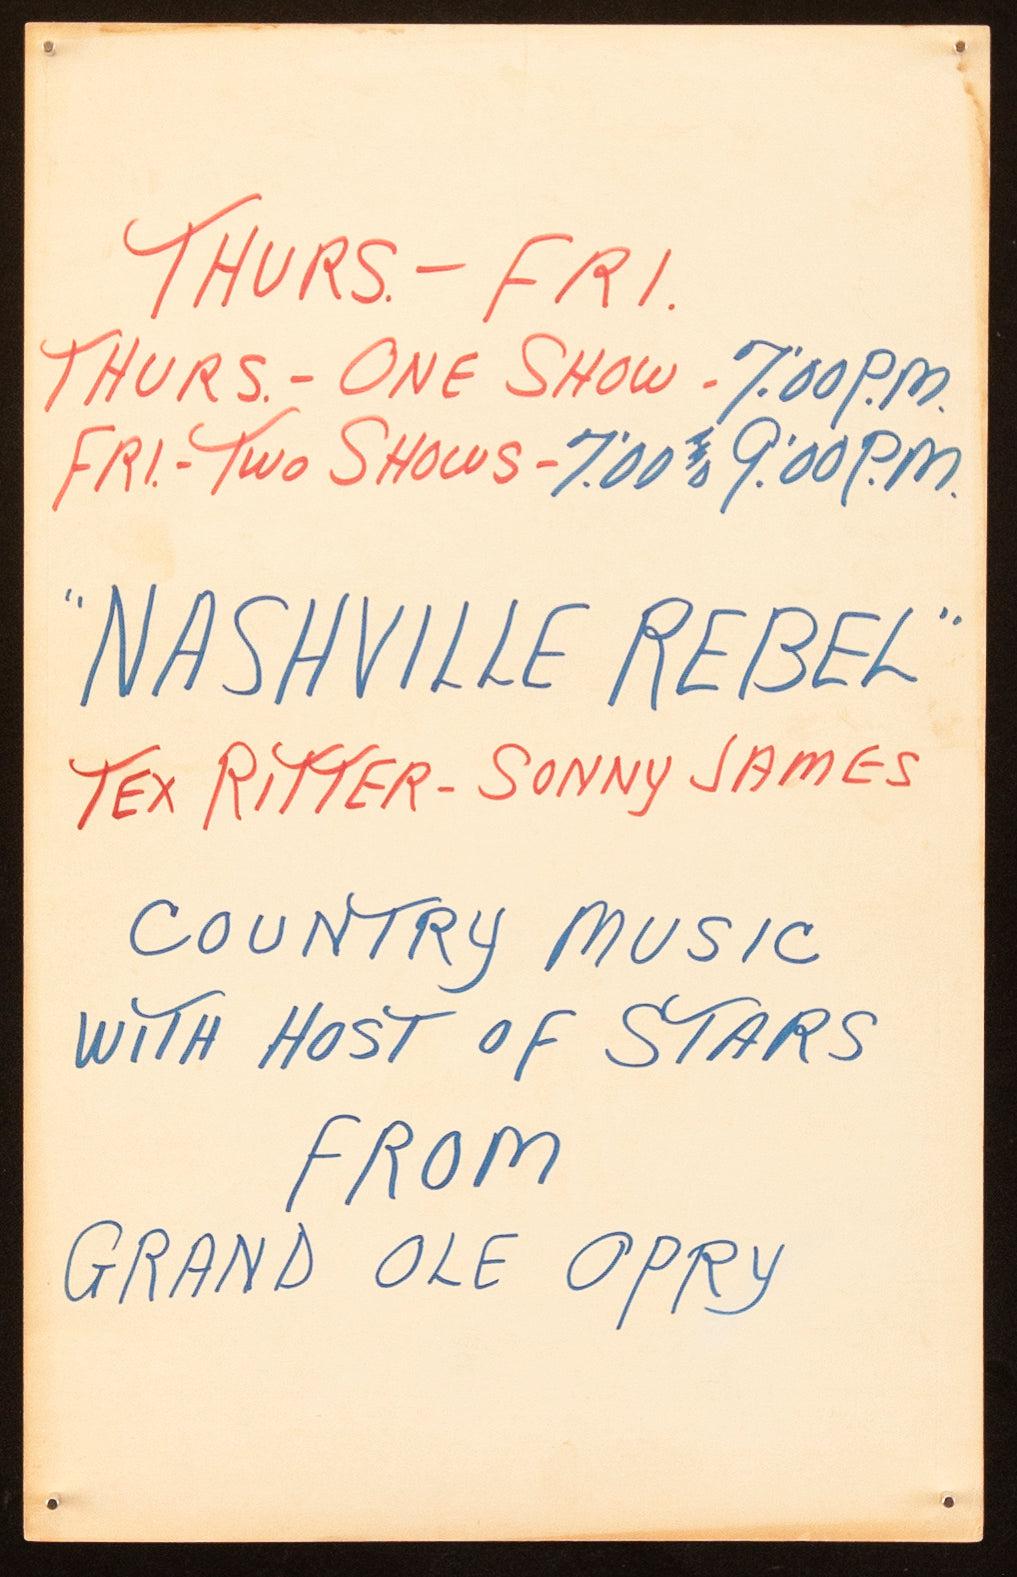 THURS. - FRI.
THURS. - ONE SHOW - 7:00 P.M.
FRI. - TWO SHOWS - 7:00 & 9:00 P.M.
"NASHVILLE REBEL"
TEX RITTER - SONNY JAMES
COUNTRY MUSIC
WITH HOST OF STARS
FROM
GRAND OLE OPRY